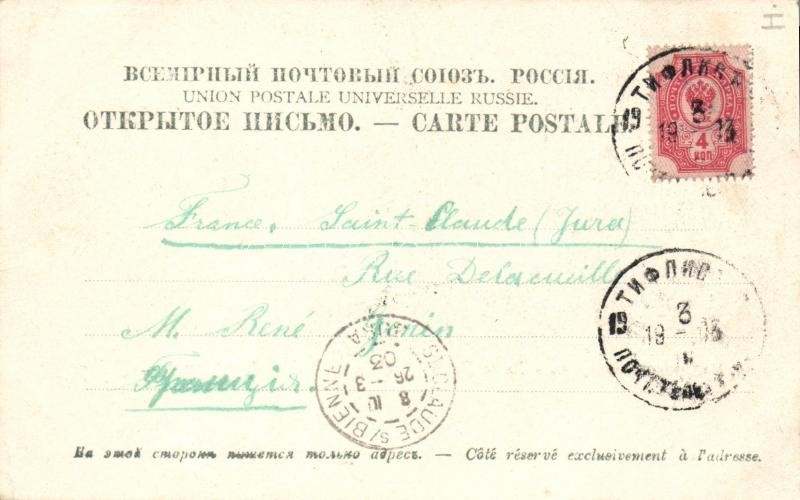 ВСЕМІРНЫЙ ПОЧТОВЫЙ СОЮЗЪ. РОССІЯ.
UNION POSTALE UNIVERSELLE RUSSIE.
ОТКРЫТОЕ ПИСЬМО. — CARTE POSTALE.
ТИФЛИСЪ
19 3
19 - 03
4
КОП
France. Saint-Claude (Jura)
Rue
M. René Janin
Франція.
ТИФЛИС
19 3
19 - 03
ST CLAUDE S/ BIENNE
JURA
8 10
26 - 3
03
На этой сторонѣ пишется только адресъ. — Côté réservé exclusivement à l'adresse.